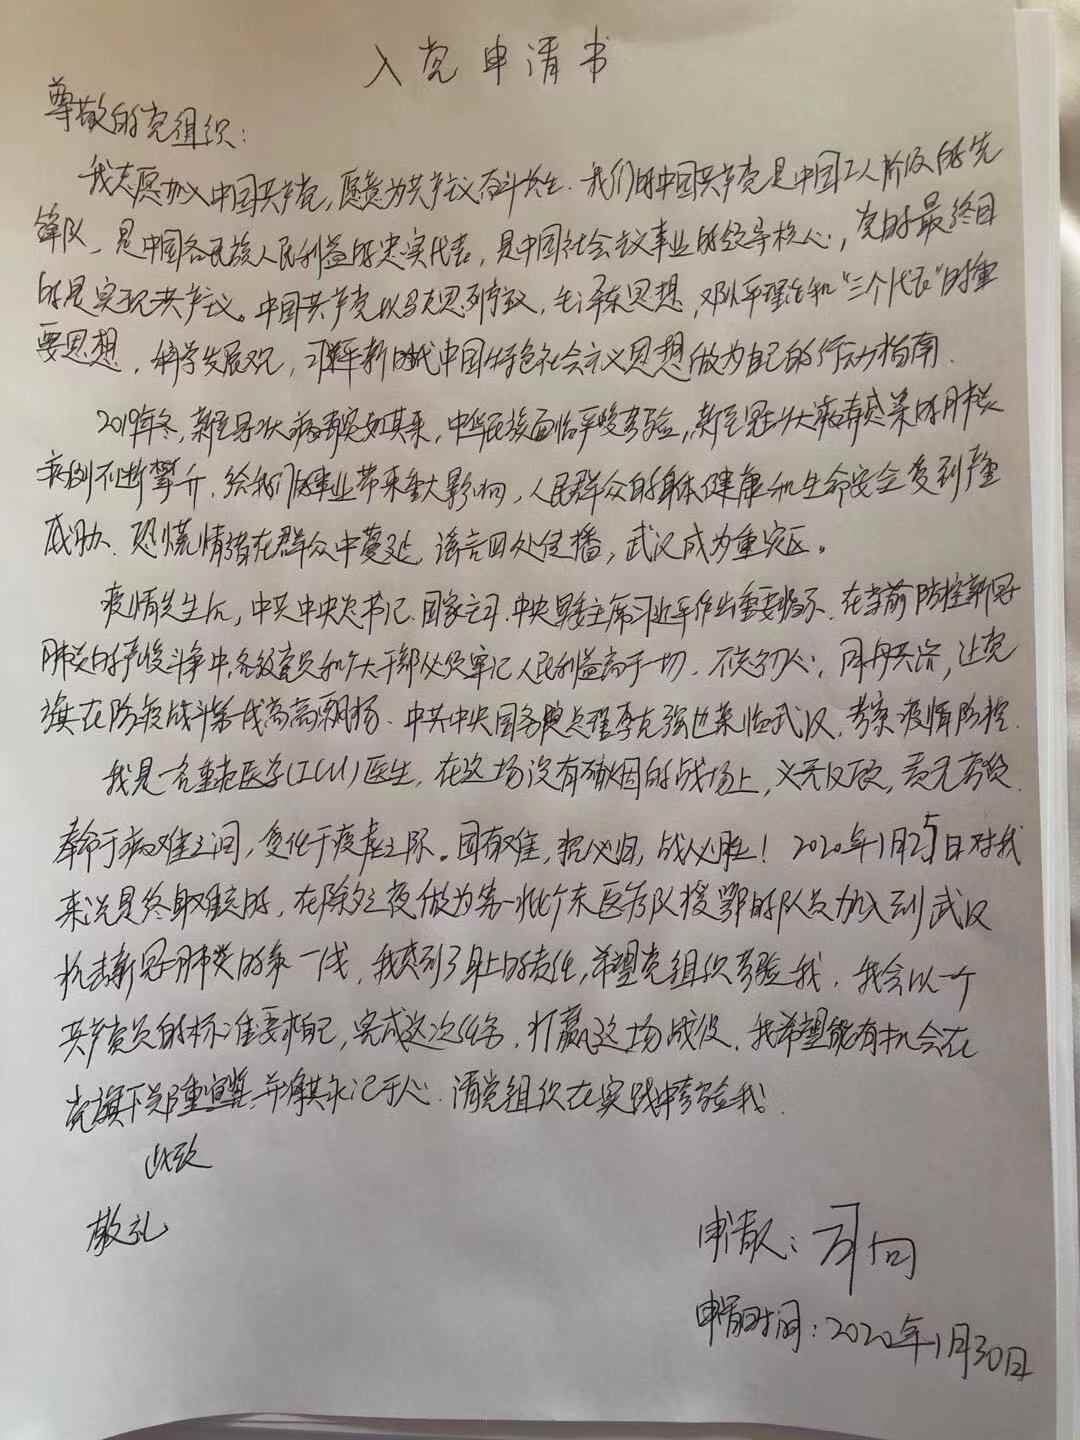 入党申请书
尊敬的党组织：
我志愿加入中国共产党，愿意为共产主义奋斗终生．我们的中国共产党是中国工人阶级的先
锋队、是中国各民族人民利益的忠实代表，是中国社会主义事业的领导核心，党的最终目
的是实现共产主义。中国共产党以马克思列宁主义、毛泽东思想，邓小平理论和“三个代表”的重
要思想，科学发展观，习近平新时代中国特色社会主义思想做为自己的行动指南．
2019年冬，新型冠状病毒突如其来，中华民族面临严峻考验，新型冠状病毒感染的肺炎
病例不断攀升．给我们的事业带来重大影响，人民群众的身体健康和生命安全受到严重
威胁、恐慌情绪在群众中蔓延．谣言四处传播，武汉成为重灾区。
疫情发生后，中共中央总书记．国家主席．中央军委主席习近平作出重要指示．在当前防控新冠
肺炎的严峻斗争中，各级党员和广大干部必须牢记人民利益高于一切．不忘初心，同舟共济，让党
旗在防疫战斗第一线高高飘扬．中共中央国务院总理李克强也莅临武汉，考察疫情防控．
我是一名重症医学(ICU)医生，在这场没有硝烟的战场上，义无反顾，责无旁贷．
奉命于病难之间，受任于疫虐之际。国有难，招必回，战必胜！2020年1月25日对我
来说是终身难忘的，在除夕之夜做为第一批广东医疗队援鄂的队员加入到武汉
抗击新冠肺炎的第一线，我感到了身上的责任，希望党组织考验我．我会以一个
共产党员的标准要求自己，完成这次任务．打赢这场战役．我希望能有机会在
党旗下郑重宣誓，并将其永记于心．请党组织在实践中考验我．
此致
敬礼
申请人：司向
申请时间：2020年1月30日